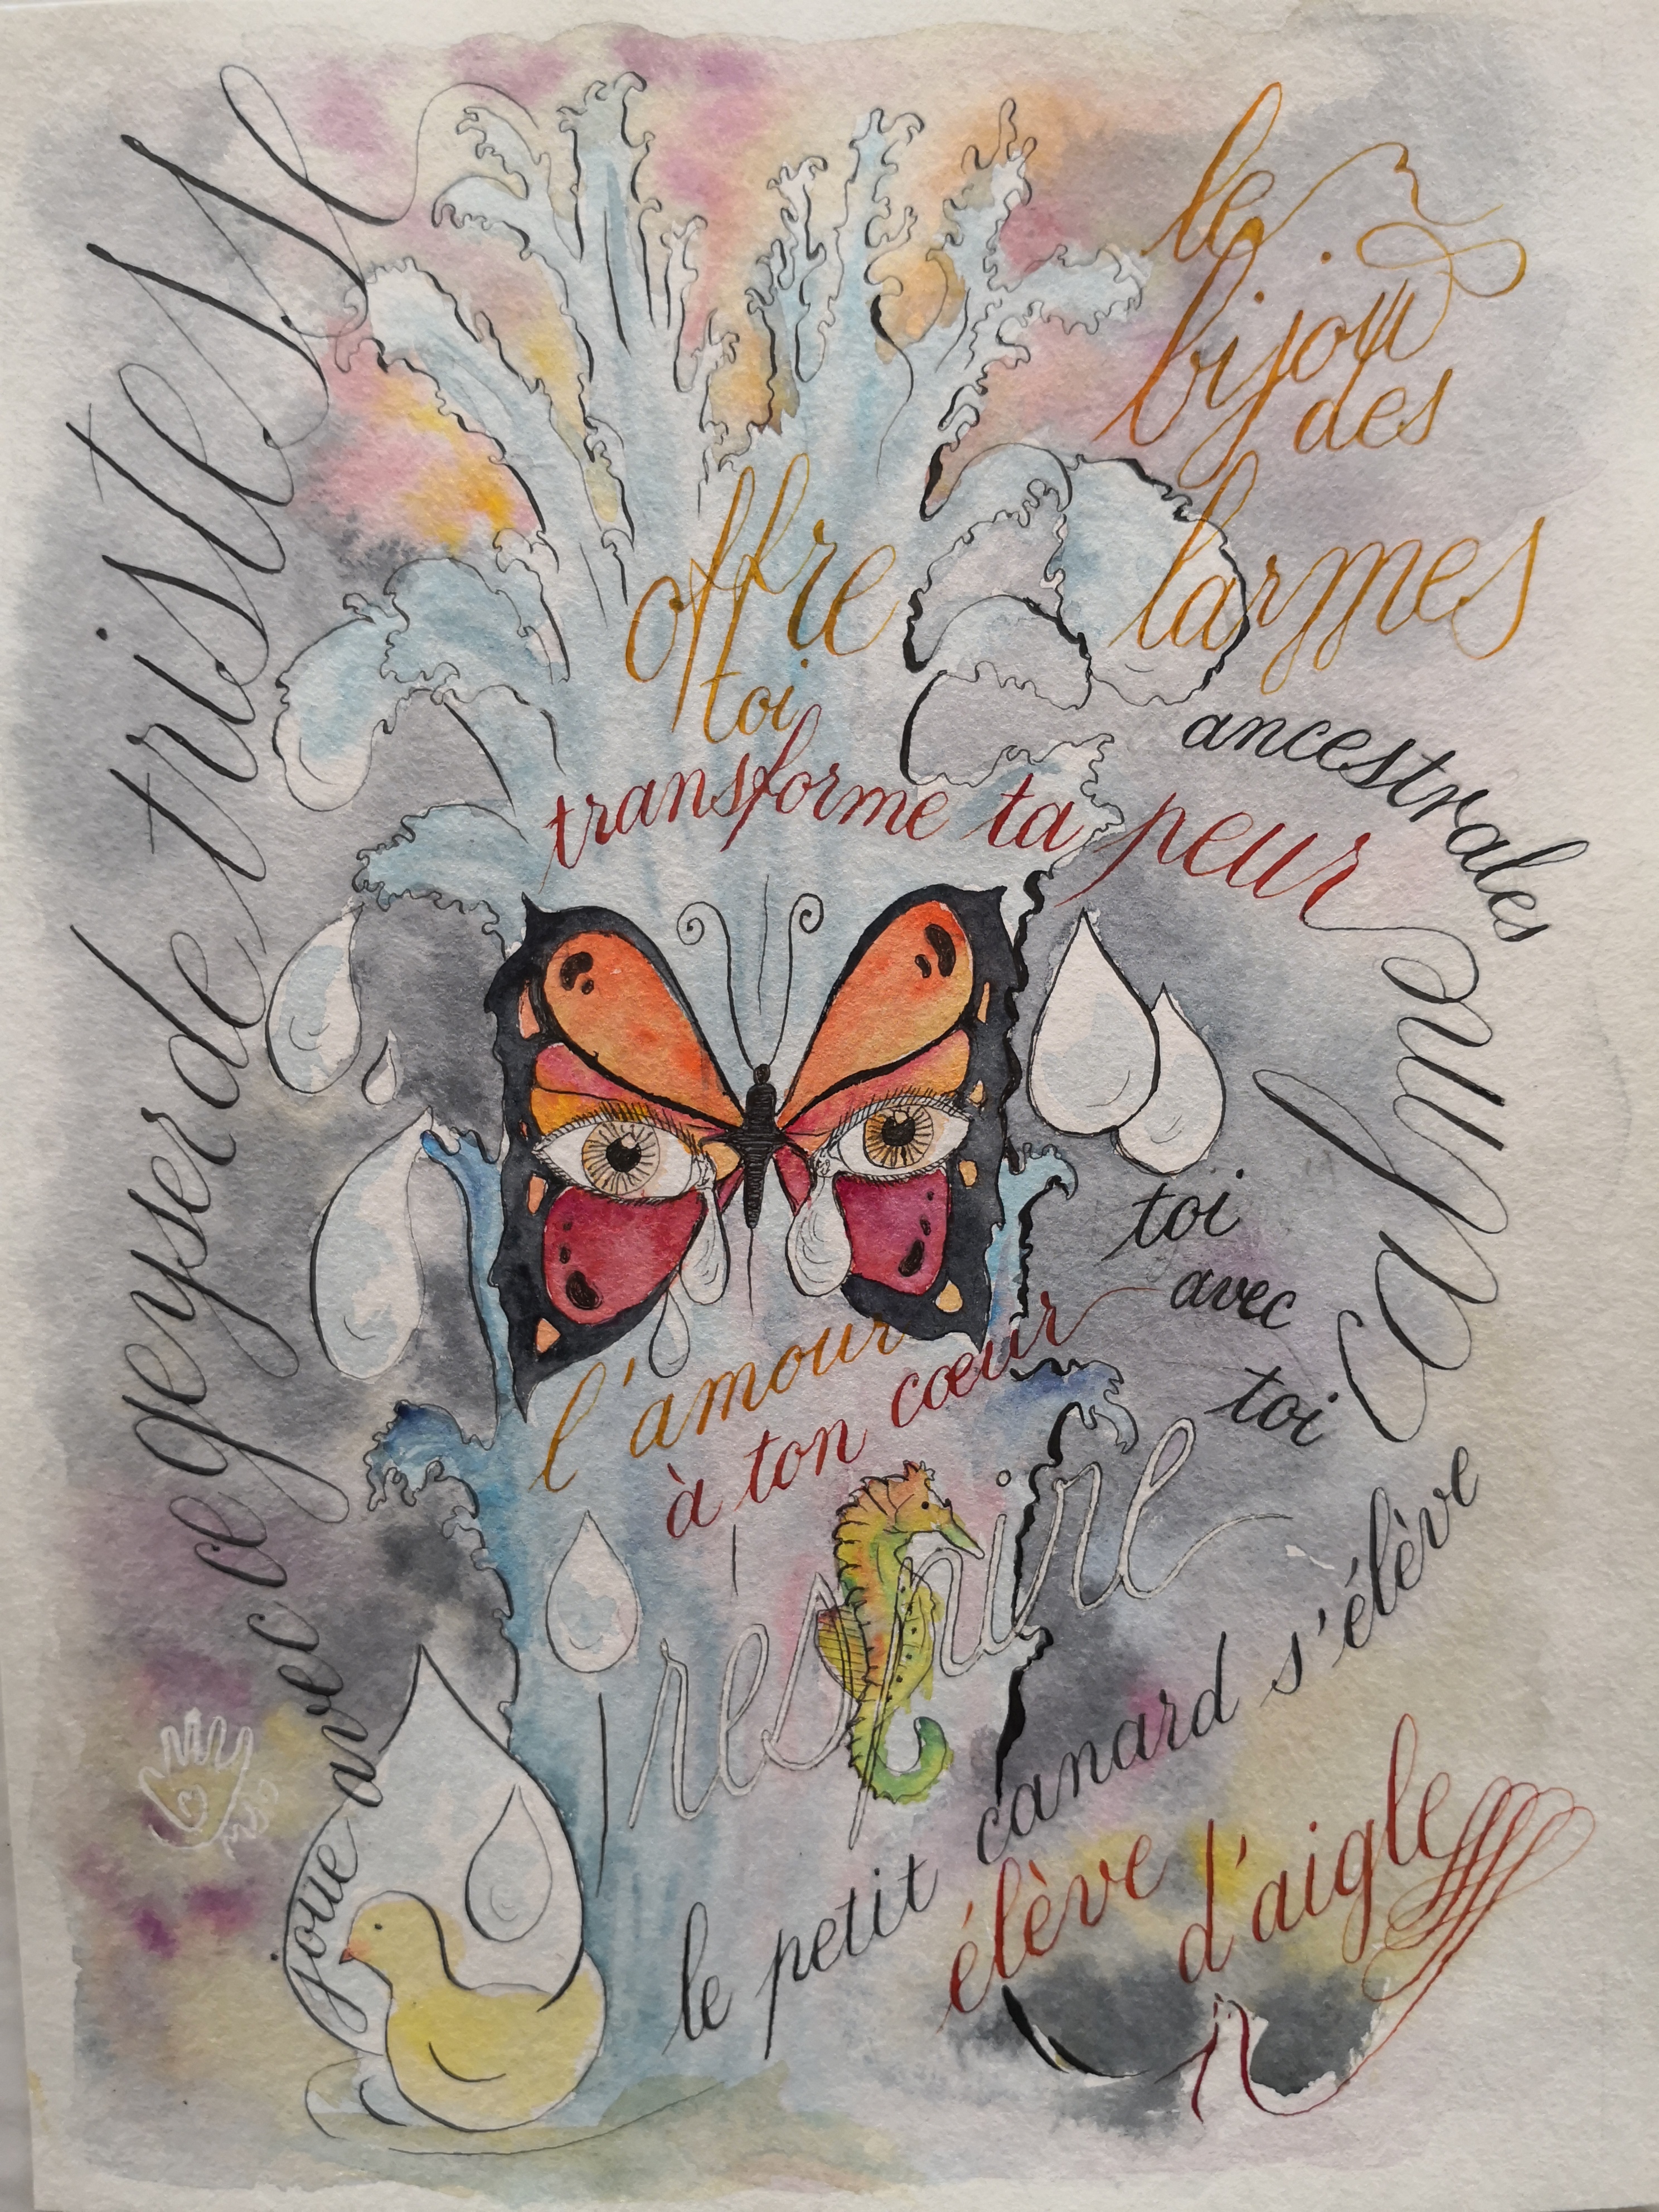 joue avec ce geyser de tristesse
le
bijou
des
larmes
ancestrales
offre
toi
transforme ta peur
calme
toi
avec
toi
l'amour
à ton cœur
respire
le petit canard s'élève
élève d'aigle